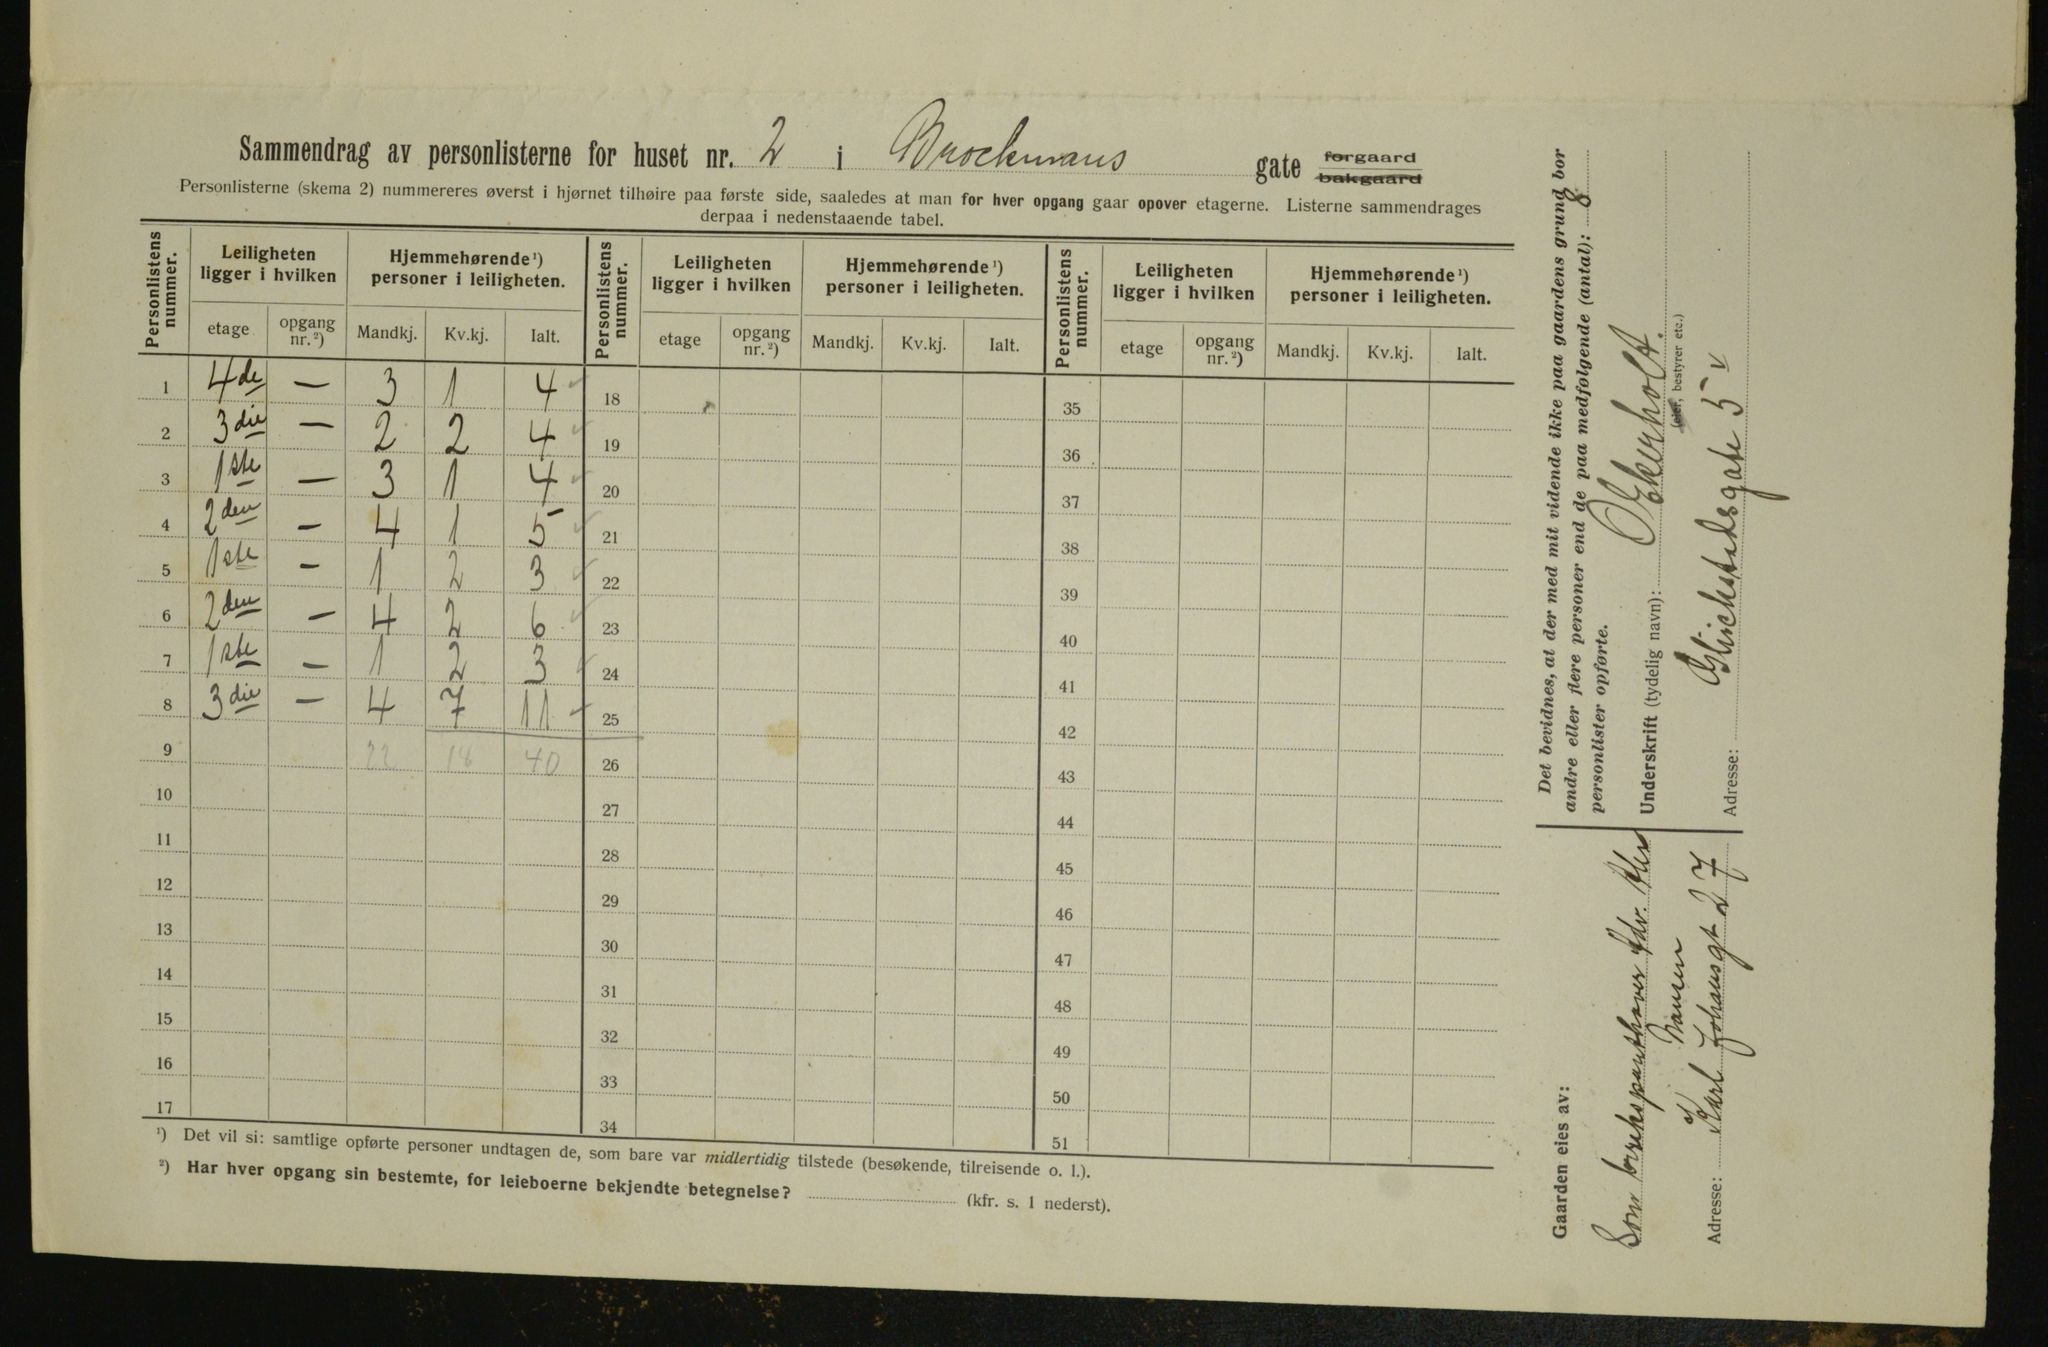 Sammendrag av personlisterne for huset nr. 2 i Brochmans gate forgaard bakgaard
Personlisterne (skema 2) nummereres øverst i hjørnet tilhøire paa første side, saaledes at man for hver opgang gaar opover etagerne. Listerne sammendrages
derpaa i nedenstaaende tabel.
Personlistens nummer. Leiligheten ligger i hvilken Hjemmehørende¹) personer i leiligheten. Personlistens nummer. Leiligheten ligger i hvilken Hjemmehørende¹) personer i leiligheten. Personlistens nummer. Leiligheten ligger i hvilken Hjemmehørende¹) personer i leiligheten.
etage opgang nr.²) Mandkj. Kv.kj. Ialt. etage opgang nr.²) Mandkj. Kv.kj. Ialt. etage opgang nr.²) Mandkj. Kv.kj. Ialt.
1 4de — 3 1 4 ✓ 18 35
2 3die — 2 2 4 ✓ 19 36
3 1ste — 3 1 4 ✓ 20 37
4 2den — 4 1 5 ✓ 21 38
5 1ste — 1 2 3 ✓ 22 39
6 2den — 4 2 6 ✓ 23 40
7 1ste — 1 2 3 ✓ 24 41
8 3die — 4 7 11 ✓ 25 42
9 22 18 40 26 43
10 27 44
11 28 45
12 29 46
13 30 47
14 31 48
15 32 49
16 33 50
17 34 51
¹) Det vil si: samtlige opførte personer undtagen de, som bare var midlertidig tilstede (besøkende, tilreisende o. l.).
²) Har hver opgang sin bestemte, for leieboerne bekjendte betegnelse? (kfr. s. 1 nederst).
Det bevidnes, at der med mit vidende ikke paa gaardens grund bor
andre eller flere personer end de paa medfølgende (antal): 8
personlister opførte.
Underskrift (tydelig navn): O Ekerholt.
(eier, bestyrer etc.)
Adresse: Glückstadsgate 5 v
Gaarden eies av:
Som brukspanthaver Adv.
Hansen
Adresse: Karl Johansgt 27